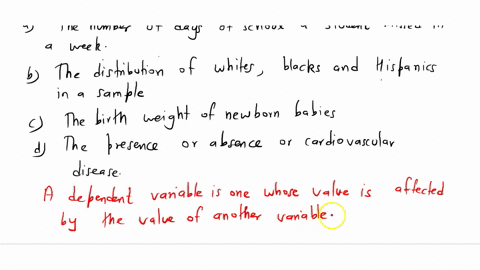 a) The number of days of school a student missed in
a week.
b) The distribution of whites, blacks and Hispanics
in a sample
c) The birth weight of newborn babies
d) The presence or absence or cardiovascular
disease.
A dependent variable is one whose value is affected
by the value of another variable.